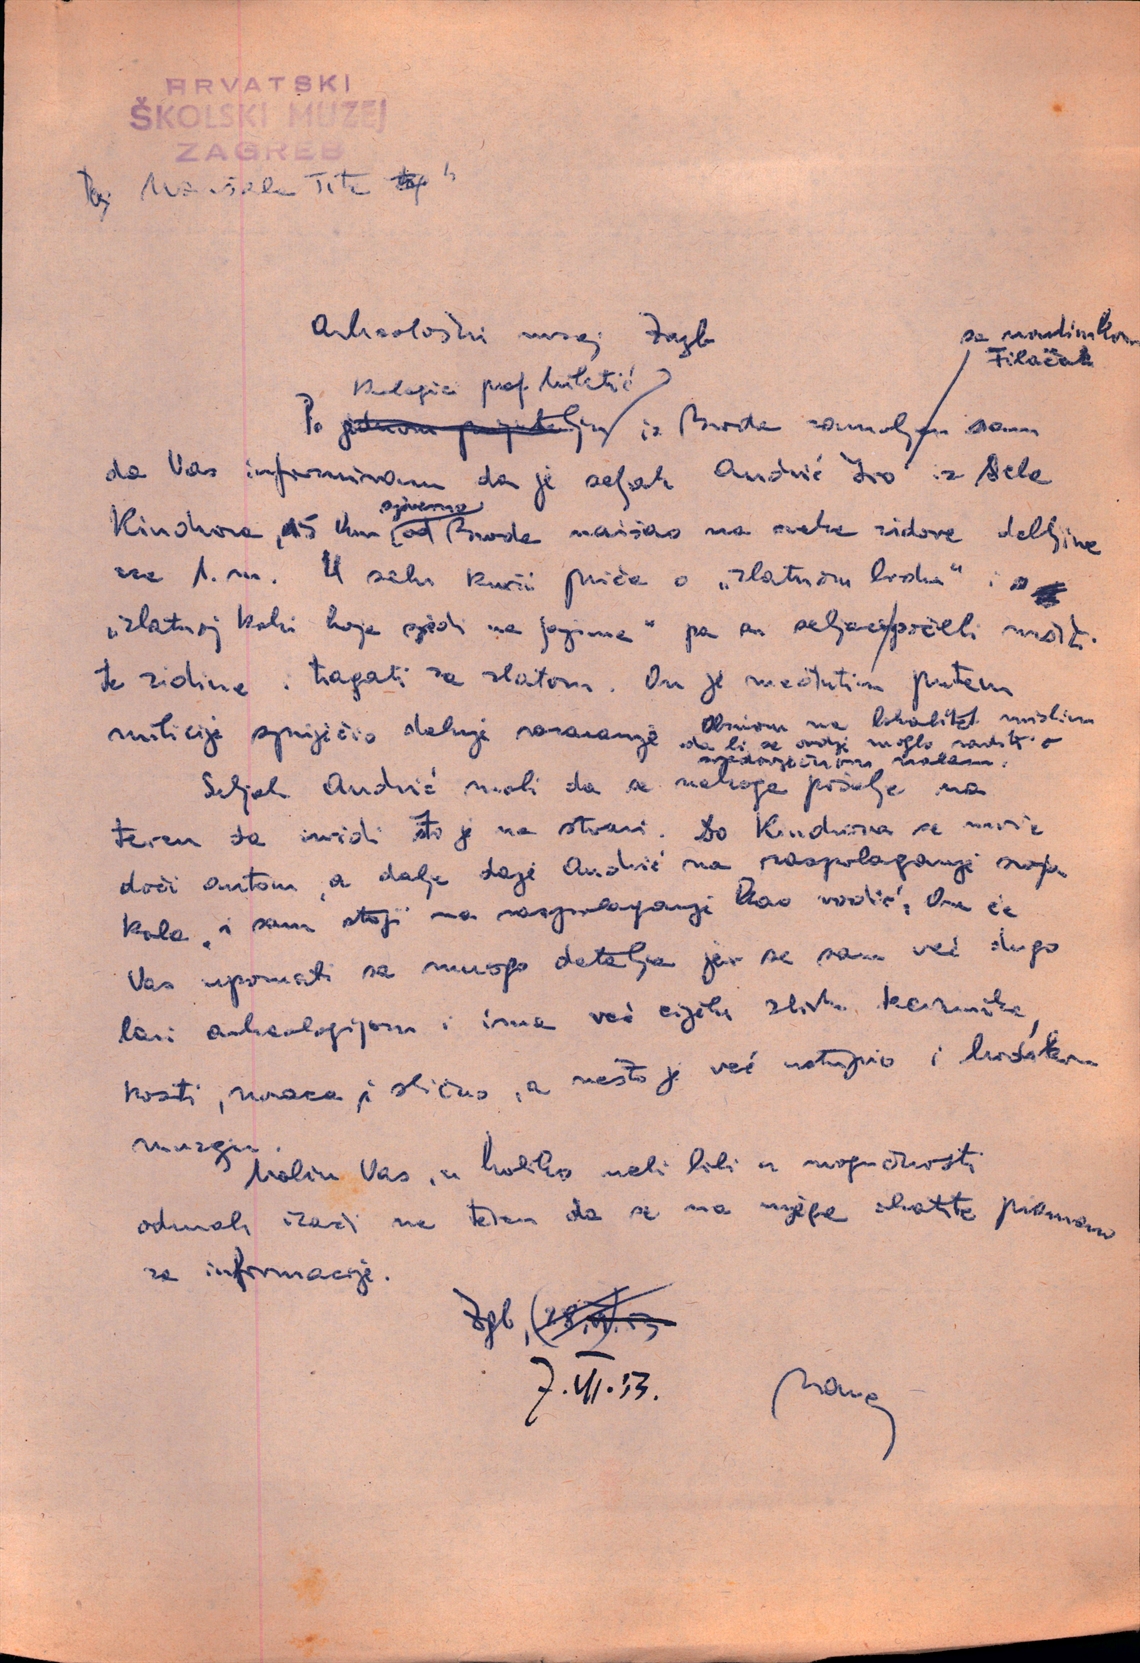 HRVATSKI
ŠKOLSKI MUZEJ
ZAGREB
Trg Maršala Tita 4
Arheološki muzej Zagb
sa nadimkom
Filaček
Kolegici prof. Miletić
Po jednom prijatelju iz Broda zamoljen sam
da Vas informiram da je seljak Andrić Ivo iz Sela
Kindrova, 15 km od Broda naišao na neke zidove debljine
sjeverno
oko 1. m. U selu kruži priča o „zlatnom brodu“ i
„zlatnoj koki koja sjedi na jajima“ pa su seljaci počeli
te zidine i tragati za zlatom. On je međutim putem
milicije spriječio daljnje razaranje
Obzirom na lokalitet mislim
da li se ovdje moglo raditi o
srednjovječnom
Seljak Andrić moli da se nekoga pošalje na
teren da uvidi što je na stvari. Do Kindrova se može
doći autom, a dalje daje Andrić na raspolaganje svoja
kola, i sam stoji na raspolaganje kao vodić. On će
Vas upoznati sa mnogo detalja jer se sam već dugo
bavi arheologijom i ima već cijelu zbirku keramike,
kosti, novaca i slično, a nešto je već ustupio i brodskom
muzeju.
Molim Vas, u koliko nebi bili u mogućnosti
odmah izaći na teren da se na njega obratite pismeno
za informacije.
Zgb, (28.VI).53
7.VII.53.